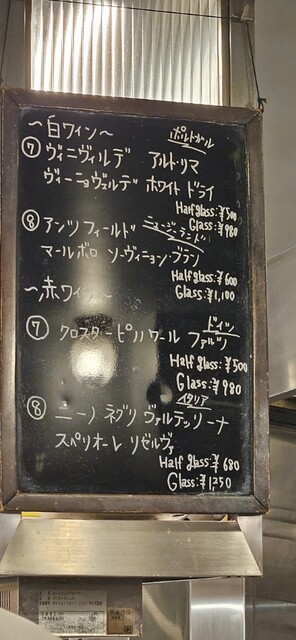 〜白ワイン〜
ポルトガル
⑦ ヴィニヴェルデ アルト・リマ
ヴィーニョヴェルデ ホワイト ドライ
Half glass:¥500
Glass:¥980
⑧ アンツフィールド ニュージーランド
マールボロ ソーヴィニョン・ブラン
Half glass:¥600
Glass:¥1,100
〜赤ワイン〜
ドイツ
⑦ クロスター ピノ ワール ファルツ
Half glass:¥500
Glass:¥980
イタリア
⑧ ニーノネグリ ヴァルテッリーナ
スペリオーレ リゼルヴァ
Half glass:¥680
Glass:¥1,250